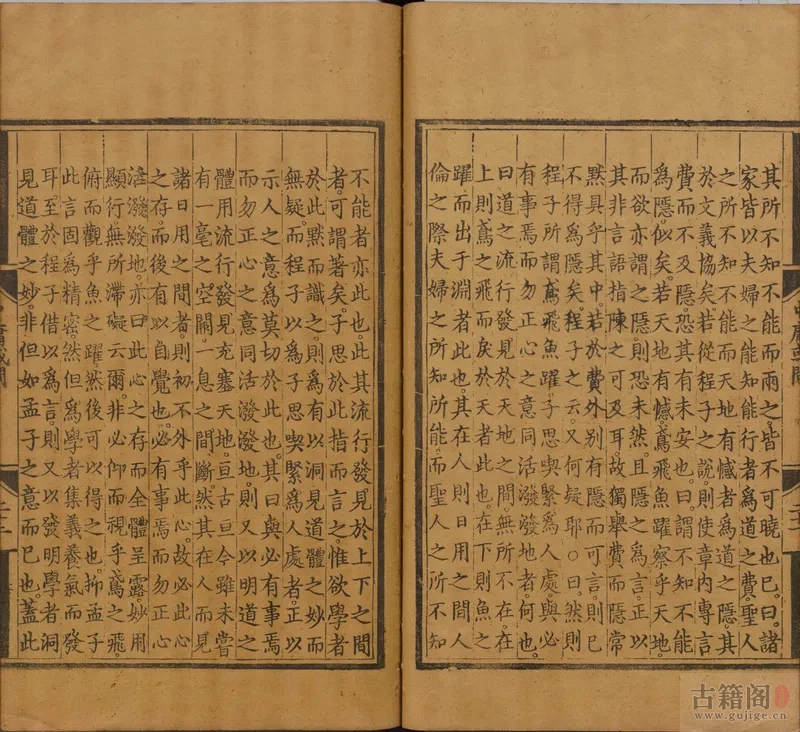 其所不知不能而兩之。皆不可曉也已。曰。諸
家皆以夫婦之能知能行者爲道之費。聖人
之所不知不能而天地有憾者爲道之隱。其
於文義協矣。若從程子之說。則使章內專言
費而不及隱。恐其有未安也。曰。謂不知不能
爲隱。似矣。若天地有憾。鳶飛魚躍。察乎天地。
而欲亦謂之隱。則恐未然。且隱之爲言。正以
其非言語指陳之可及耳。故獨舉費而隱常
黙具乎其中。若於費外別有隱而可言。則已
不得爲隱矣。程子之云。又何疑耶。○曰。然則
程子所謂鳶飛魚躍。子思喫緊爲人處。與必
有事焉而勿正心之意同。活潑潑地者。何也。
曰。道之流行發見於天地之間。無所不在。在
上則鳶之飛而戾於天者。此也。在下則魚之
躍而出于淵者。此也。其在人則日用之間。人
倫之際。夫婦之所知所能。而聖人之所不知
不能者。亦此也。此其流行發見於上下之間
者。可謂著矣。子思於此指而言之。惟欲學者
於此黙而識之。則爲有以洞見道體之妙而
無疑。而程子以爲子思喫緊爲人處者。正以
示人之意爲莫切於此也。其曰與必有事焉
而勿正心之意同。活潑潑地。則又以明道之
體用流行發見。充塞天地。亘古亘今。雖未嘗
有一毫之空闕。一息之間斷。然其在人而見
諸日用之間者。則初不外乎此心。故必此心
之存。而後有以自覺也。必有事焉而勿正心
活潑潑地。亦曰此心之存而全體呈露。妙用
顯行。無所滯礙云爾。非必仰而視乎鳶之飛。
俯而觀乎魚之躍。然後可以得之也。抑孟子
此言固爲精密。然但爲學者集義養氣而發
耳。至於程子借以爲言。則又以發明學者洞
見道體之妙。非但如孟子之意而已也。蓋此
古籍阁
www.gujige.cn